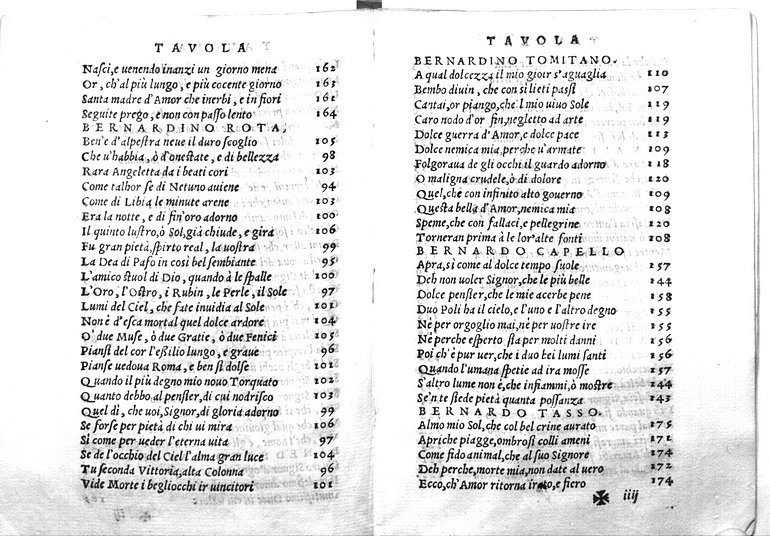 TAVOLA
Nasci, e uenendo inanzi un giorno mena 162
Or, ch'al più lungo, e più cocente giorno 163
Santa madre d'Amor che inerbi, e in fiori 161
Seguite prego, e non con passo lento 164
BERNARDINO ROTA.
Ben'è d'alpestra neue il duro scoglio 105
Che u'habbia, ò d'onestate, e di bellezza 98
Rara Angeletta da i beati cori 103
Come talhor se di Netuno auiene 94
Come di Libia le minute arene 103
Era la notte, e di fin'oro adorno 100
Il quinto lustro, ò Sol, già chiude, e gira 106
Fu gran pietà, spirto real, la uostra 99
La Dea di Pafo in così bel sembiante 95
L'amico stuol di Dio, quando à le spalle 100
L'Oro, l'Ostro, i Rubin, le Perle, il Sole 97
Lumi del Ciel, che fate inuidia al Sole 101
Non è d'esca mortal quel dolce ardore 104
O' due Muse, ò due Gratie, ò due Fenici 105
Piansi del cor l'essilio lungo, e graue 96
Pianse uedoua Roma, e ben si dolse 101
Quando il più degno mio nouo Torquato 102
Quanto debbo al pensier, di cui nodrisco 103
Quel dì, che uoi, Signor, di gloria adorno 99
Se forse per pietà di chi ui mira 106
Si come per ueder l'eterna uita 97
Se de l'occhio del Ciel l'alma gran luce 104
Tu seconda Vittoria, alta Colonna 96
Vide Morte i begliocchi ir uincitori 101
TAVOLA
BERNARDINO TOMITANO.
A qual dolcezza il mio gioir s'aguaglia 110
Bembo diuin, che con si lieti passi 107
Cantai, or piango, che'l mio uiuo Sole 119
Caro nodo d'or fin, negletto ad arte 119
Dolce guerra d'Amor, e dolce pace 113
Dolce nemica mia, perche u'armate 109
Folgoraua de gli occhi il guardo adorno 118
O maligna crudele, ò di dolore 120
Quel, che con infinito alto gouerno 109
Questa bella d'Amor, nemica mia 108
Speme, che con fallaci, e pellegrine 120
Torneran prima à le lor'alte fonti 108
BERNARDO CAPELLO
Apra, si come al dolce tempo suole 157
Deh non uoler Signor, che le più belle 144
Dolce pensier, che le mie acerbe pene 158
Duo Poli ha il cielo, e l'uno e l'altro degno 155
Nè per orgoglio mai, nè per uostre ire 155
Nè perche esperto sia per molti danni 156
Poi ch'è pur uer, che i duo bei lumi santi 156
Quando l'umana spetie ad ira mosse 157
S'altro lume non è, che infiammi, ò mostre 144
Se'n te siede pietà quanta possanza 143
BERNARDO TASSO.
Almo mio Sol, che col bel crine aurato 175
Apriche piagge, ombrosi colli ameni 171
Come fido animal, che al suo Signore 174
Deh perche, morte mia, non date al uero 172
Ecco, ch'Amor ritorna irato, e fiero 174
✠ iiij